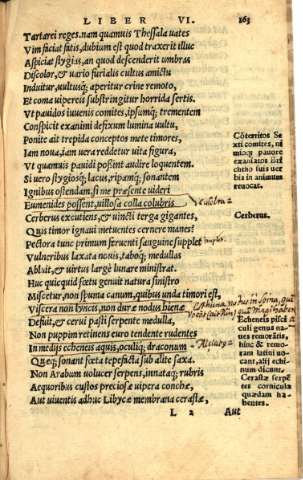 LIBER VI. 163
Tartarei reges. nam quamuis Thessala uates
Vim faciat fatis, dubium est quod traxerit illuc
Aspiciat stygias, an quod descenderit umbras
Discolor, & uario furialis cultus amictu
Induitur, uultusq; aperitur crine remoto,
Et coma uipereis substringitur horrida sertis.
Vt pauidos iuuenis comites, ipsumq; trementem
Conspicit exanimi defixum lumina uultu,
Ponite ait trepida conceptos mente timores,
Iam noua, iam uera reddetur uita figura,
Vt quamuis pauidi possint audire loquentem.
Si uero stygiosq; lacus, ripamq; sonantem
Ignibus ostendam, si me præsente uideri
Eumenides possent, uillosaq; colla colubris
Cerberus excutiens, & uincti terga gigantes,
Quis timor ignaui metuentes cernere manes?
Pectora tunc primum feruenti sanguine supplet
Vulneribus laxata nouis, taboq; medullas
Abluit, & uirus large lunare ministrat.
Huc quicquid fœtu genuit natura sinistro
Miscetur, non spuma canum, quibus unda timori est,
Viscera non lyncis, non duræ nodus hienæ
Defuit, & cerui pasti serpente medullæ,
Non puppim retinens euro tendente rudentes
In medijs echeneis aquis, oculiq; draconum
Quæq; sonant fœta tepefacta sub alite saxa.
Non Arabum uolucer serpens, innataq; rubris
Aequoribus custos preciosæ uipera conchæ,
Aut uiuentis adhuc Libycæ membrana cerastæ,
L 2 Aut
Cōterritos Se
xti comites, ni
exanimatos
Cerberus.
Echeneis pisci
culi genus na
ues remorātis,
hinc & remo-
ram latini uo-
cant, alij echi-
num dicunt.
Cerastæ serpē
tes cornicula
quædam ha-
bentes.